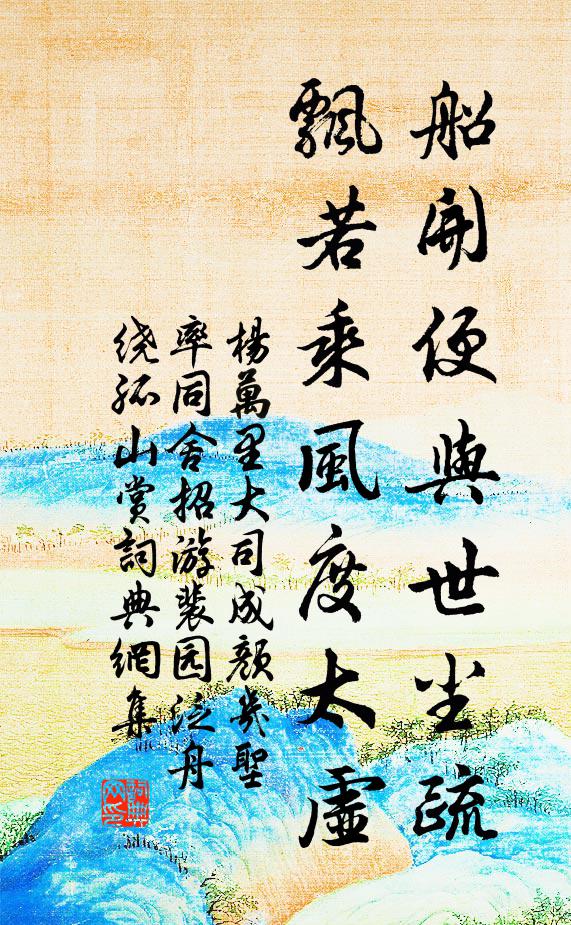 船開便與世尘疏
飄若乘風度太虛
楊萬里大司成顏幾聖
率同舍招游裴园泛舟
绕孤山賞詞典網集